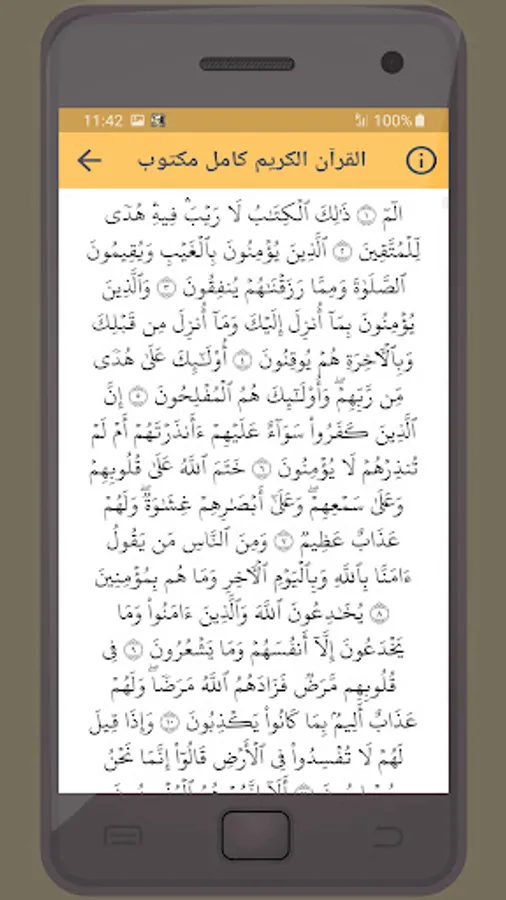 11:42 100%
القرآن الكريم كامل مكتوب
الٓمٓ ١ ذَٰلِكَ ٱلۡكِتَٰبُ لَا رَيۡبَۛ فِيهِۛ هُدٗى
لِّلۡمُتَّقِينَ ٢ ٱلَّذِينَ يُؤۡمِنُونَ بِٱلۡغَيۡبِ وَيُقِيمُونَ
ٱلصَّلَوٰةَ وَمِمَّا رَزَقۡنَٰهُمۡ يُنفِقُونَ ٣ وَٱلَّذِينَ
يُؤۡمِنُونَ بِمَآ أُنزِلَ إِلَيۡكَ وَمَآ أُنزِلَ مِن قَبۡلِكَ
وَبِٱلۡأٓخِرَةِ هُمۡ يُوقِنُونَ ٤ أُوْلَٰٓئِكَ عَلَىٰ هُدٗى
مِّن رَّبِّهِمۡۖ وَأُوْلَٰٓئِكَ هُمُ ٱلۡمُفۡلِحُونَ ٥ إِنَّ
ٱلَّذِينَ كَفَرُواْ سَوَآءٌ عَلَيۡهِمۡ ءَأَنذَرۡتَهُمۡ أَمۡ لَمۡ
تُنذِرۡهُمۡ لَا يُؤۡمِنُونَ ٦ خَتَمَ ٱللَّهُ عَلَىٰ قُلُوبِهِمۡ
وَعَلَىٰ سَمۡعِهِمۡۖ وَعَلَىٰٓ أَبۡصَٰرِهِمۡ غِشَٰوَةٞۖ وَلَهُمۡ
عَذَابٌ عَظِيمٞ ٧ وَمِنَ ٱلنَّاسِ مَن يَقُولُ
ءَامَنَّا بِٱللَّهِ وَبِٱلۡيَوۡمِ ٱلۡأٓخِرِ وَمَا هُم بِمُؤۡمِنِينَ
٨ يُخَٰدِعُونَ ٱللَّهَ وَٱلَّذِينَ ءَامَنُواْ وَمَا
يَخۡدَعُونَ إِلَّآ أَنفُسَهُمۡ وَمَا يَشۡعُرُونَ ٩ فِي
قُلُوبِهِم مَّرَضٞ فَزَادَهُمُ ٱللَّهُ مَرَضٗاۖ وَلَهُمۡ
عَذَابٌ أَلِيمُۢ بِمَا كَانُواْ يَكۡذِبُونَ ١٠ وَإِذَا قِيلَ
لَهُمۡ لَا تُفۡسِدُواْ فِي ٱلۡأَرۡضِ قَالُوٓاْ إِنَّمَا نَحۡنُ